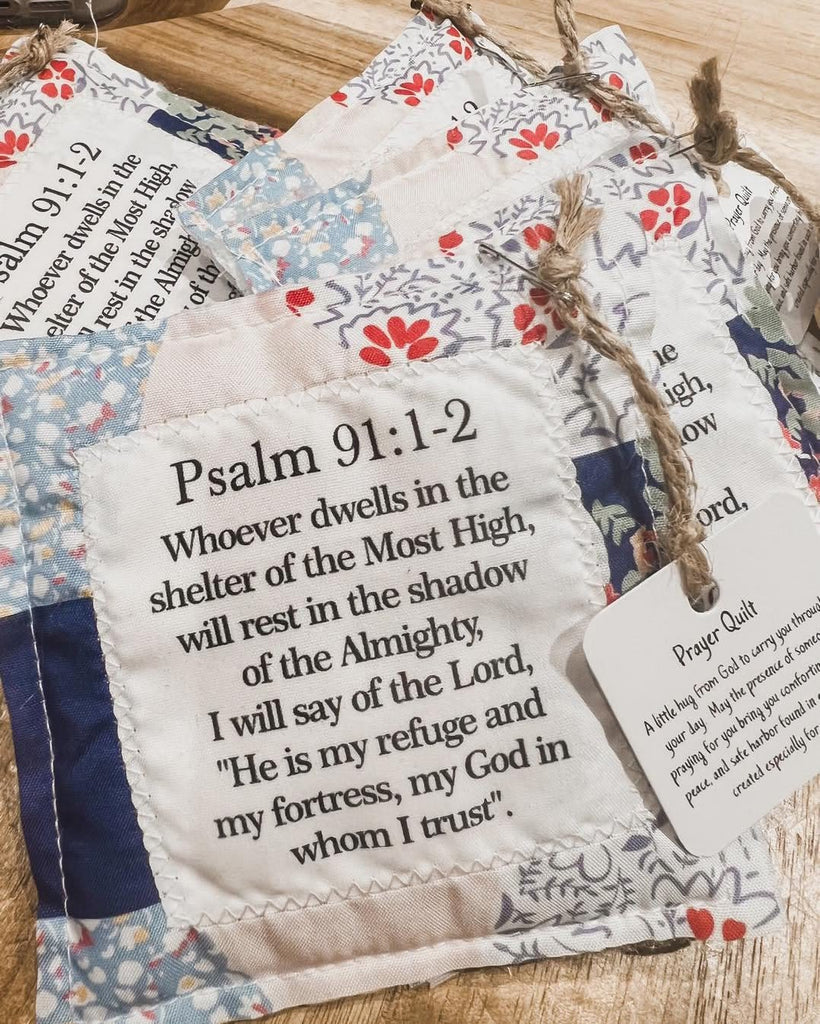 Psalm 91:1-2
Whoever dwells in the
shelter of the Most High,
will rest in the shadow
of the Almighty,
I will say of the Lord,
"He is my refuge and
my fortress, my God in
whom I trust".
Prayer Quilt
A little hug from God to carry you through
your day. May the presence of
praying for you bring you
peace, and safe harbor found in
created especially for
Psalm 91:1-2
Whoever dwells in the
shelter of the Most High,
rest in the shadow
the
of
ord,
Prayer Quilt